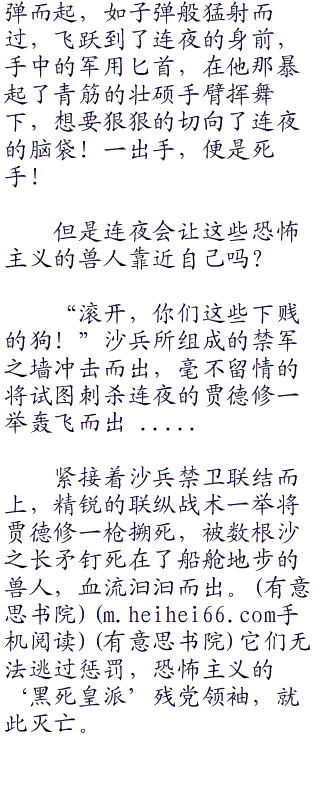 弹而起，如子弹般猛射而
过，飞跃到了连夜的身前，
手中的军用匕首，在他那暴
起了青筋的壮硕手臂挥舞
下，想要狠狠的切向了连夜
的脑袋！一出手，便是死
手！
但是连夜会让这些恐怖
主义的兽人靠近自己吗？
“滚开，你们这些下贱
的狗！”沙兵所组成的禁军
之墙冲击而出，毫不留情的
将试图刺杀连夜的贾德修一
举轰飞而出 .....
紧接着沙兵禁卫联结而
上，精锐的联纵战术一举将
贾德修一枪搠死，被数根沙
之长矛钉死在了船舱地步的
兽人，血流汩汩而出。(有意
思书院)(m.heihei66.com手
机阅读)(有意思书院)它们无
法逃过惩罚，恐怖主义的
‘黑死皇派’残党领袖，就
此灭亡。